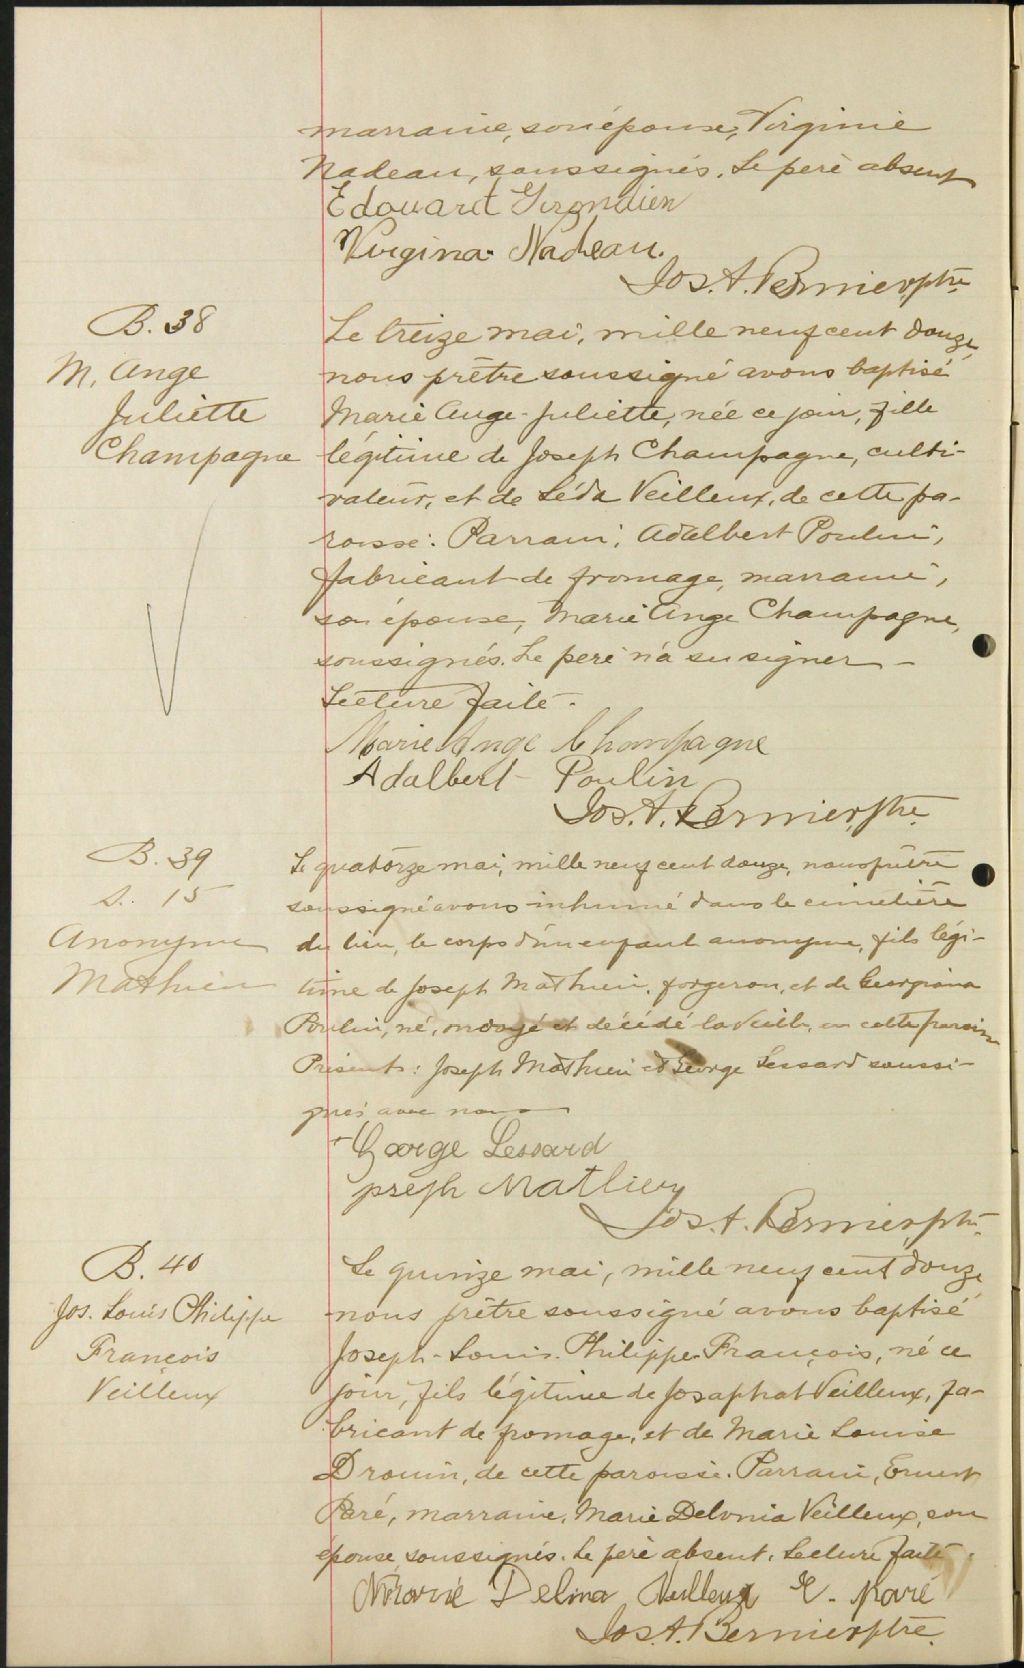 marraine, son épouse, Virginie
Nadeau, soussignés. Le père absent
Edouard Grondien
Virgina Nadeau.
Jos. A. Bernier, ptre
B. 38
M. Ange
Juliette
Champagne
Le treize mai, mille neuf cent douze,
nous prêtre soussigné avons baptisé
Marie Ange-Juliette, née ce jour, fille
légitime de Joseph Champagne, culti-
vateur, et de Léda Veilleux, de cette pa-
roisse. Parrain, Adalbert Poulin,
fabricant de fromage, marraine,
son épouse, Marie Ange Champagne,
soussignés. Le père n'a su signer -
Lecture faite -
Marie Ange Champagne
Adalbert Poulin
Jos. A. Bernier, ptre.
B. 39
S. 15
Anonyme
Mathieu
Le quatorze mai, mille neuf cent douze, nous prêtre
soussigné avons inhumé dans le cimetière
du lieu, le corps d'un enfant anonyme, fils légi-
time de Joseph Mathieu, forgeron, et de Georgiana
Poulin, né, ondoyé et décédé la veille, en cette paroisse
Présents: Joseph Mathieu et George Lessard soussi-
gnés avec nous
George Lessard
joseph Mathieu
Jos. A. Bernier, ptre.
B. 40
Jos. Louis Philippe
François
Veilleux
Le quinze mai, mille neuf cent douze
nous prêtre soussigné avons baptisé
Joseph-Louis-Philippe-François, né ce
jour, fils légitime de Josaphat Veilleux, fa-
bricant de fromage, et de Marie Louise
Drouin, de cette paroisse. Parrain, Ernest
Paré, marraine, Marie Delvnia Veilleux, son
épouse, soussignés. Le père absent. Lecture faite.
Marie Delina Veilleux E. Paré
Jos. A. Bernier ptre.